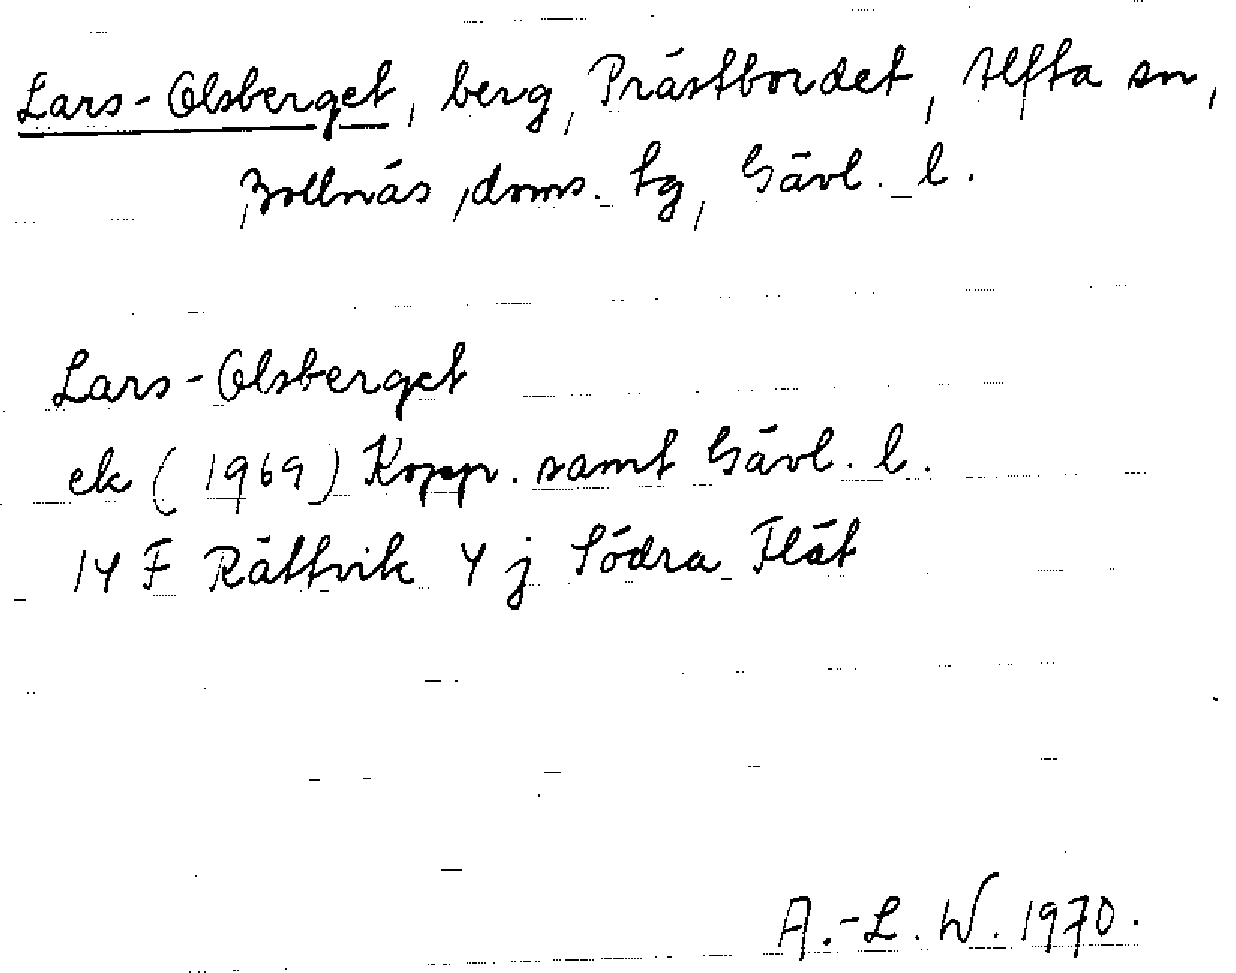 Lars-Olsberget, berg, Prästbordet, Alfta sn,
Bollnäs doms. tg, Gävl. l.
Lars-Olsberget
ek (1969) Kopp. samt Gävl. l.
14 F Rättvik 4 j Södra Flät
A.-L. W. 1970.